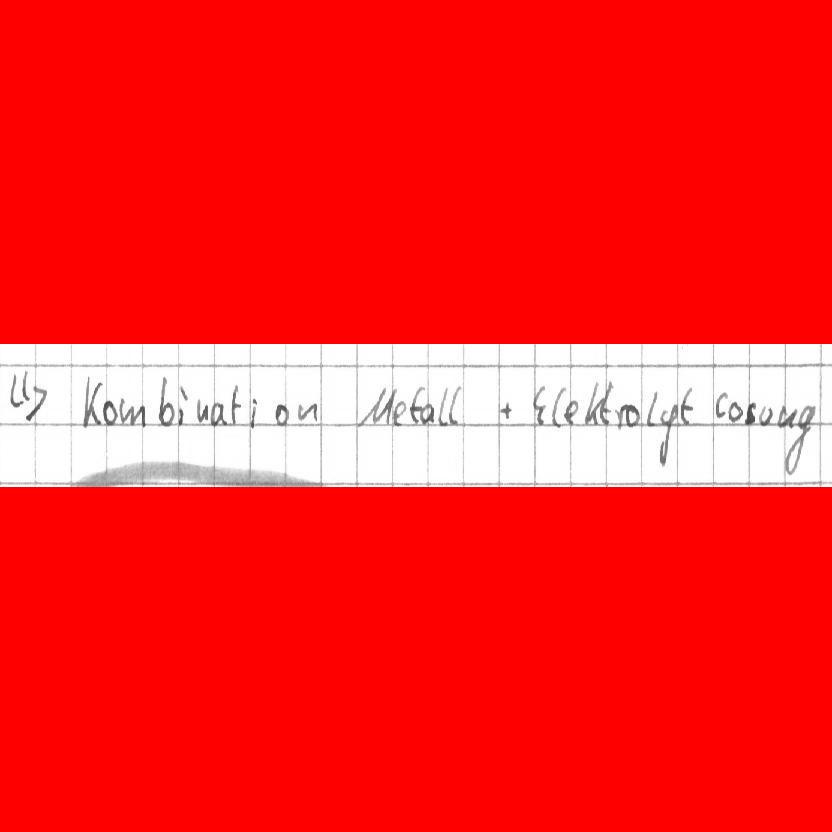 ↳> Kombination Metall + Elektrolyt lösung